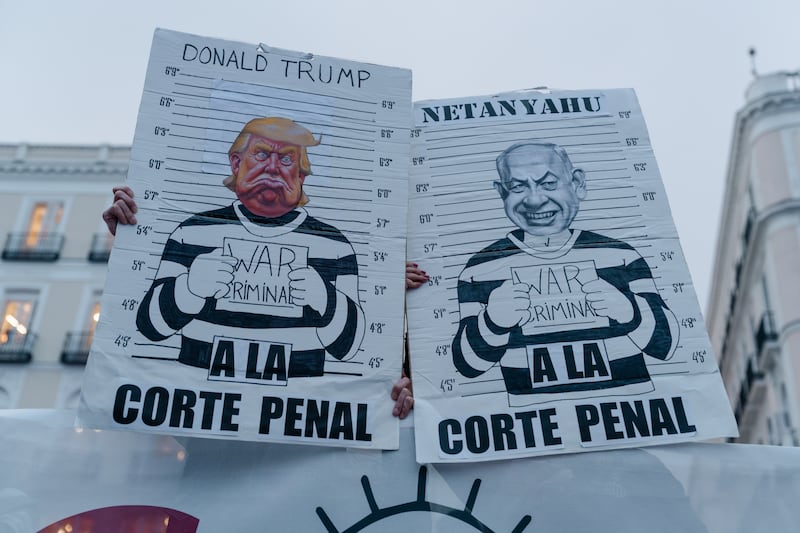 DONALD TRUMP
6'9
6'6
6'3
6'0
5'7
5'4
5'1
4'8
4'5
6'9
6'6
6'3
6'0
5'7
5'4
5'1
4'8
4'5
WAR
CRIMINAL
A LA
CORTE PENAL
NETANYAHU
6'3
6'0
5'7
5'1
4'8
4'5
6'9
6'6
6'3
6'0
5'4
5'1
4'8
4'5
WAR
CRIMINAL
A LA
CORTE PENAL